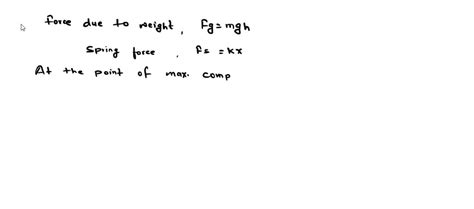 force due to weight, Fg = mgh
Spring force, Fs = kx
At the point of max. comp